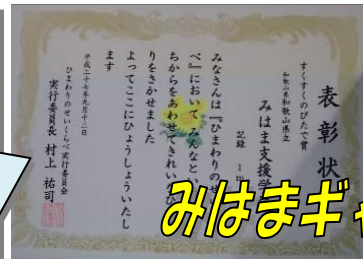 表彰状
すくすくのびたで賞
和歌山県和歌山県立
みはま支援学
記録 1
みなさんは『ひまわりのせ
べ』において みんなとい
ちからをあわせてきれいな
りをさかせました
よってここにひょうしょういたし
ます
平成二十七年九月十三日
ひまわりのせいくらべ実行委員会
実行委員長 村上 祐司
みはまギャ